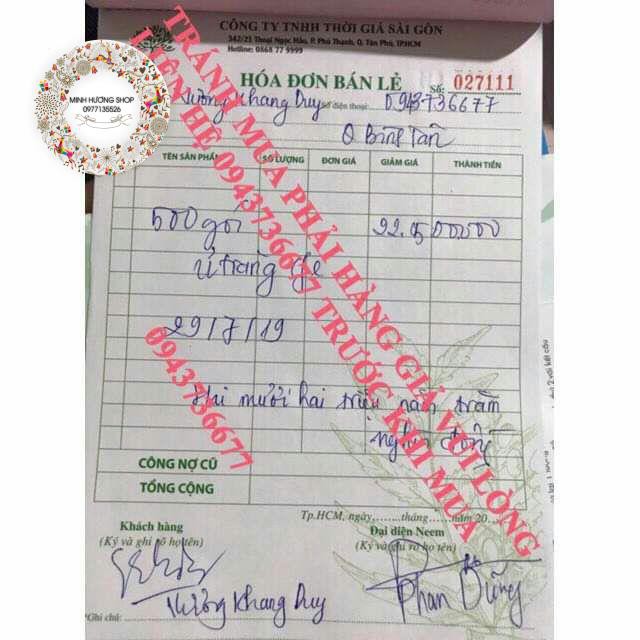 CÔNG TY TNHH THỜI GIÁ SÀI GÒN
342/23 Thoại Ngọc Hầu, P. Phú Thạnh, Q. Tân Phú, TP.HCM
Hotline: 0868 77 9999
HÓA ĐƠN BÁN LẺ Số: 027111
MINH HƯƠNG SHOP
0977135526
Vương Khang Duy Số điện thoại: 0943736677
Q Bình Tân
TÊN SẢN PHẨM SỐ LƯỢNG ĐƠN GIÁ GIẢM GIÁ THÀNH TIỀN
500 gói 22.500000
ủ trắng
29/7/19
Hai mươi hai triệu năm trăm
nghìn đồng
CÔNG NỢ CŨ
TỔNG CỘNG
Tp.HCM, ngày,........tháng........năm 20
Khách hàng Đại diện Neem
(Ký và ghi rõ họ tên) (Ký và ghi rõ họ tên)
Vương Khang Duy Phan Dũng
*Ghi chú:
TRÁNH MUA PHẢI HÀNG GIẢ VUI LÒNG
LIÊN HỆ 0943736677 TRƯỚC KHI MUA
0943736677